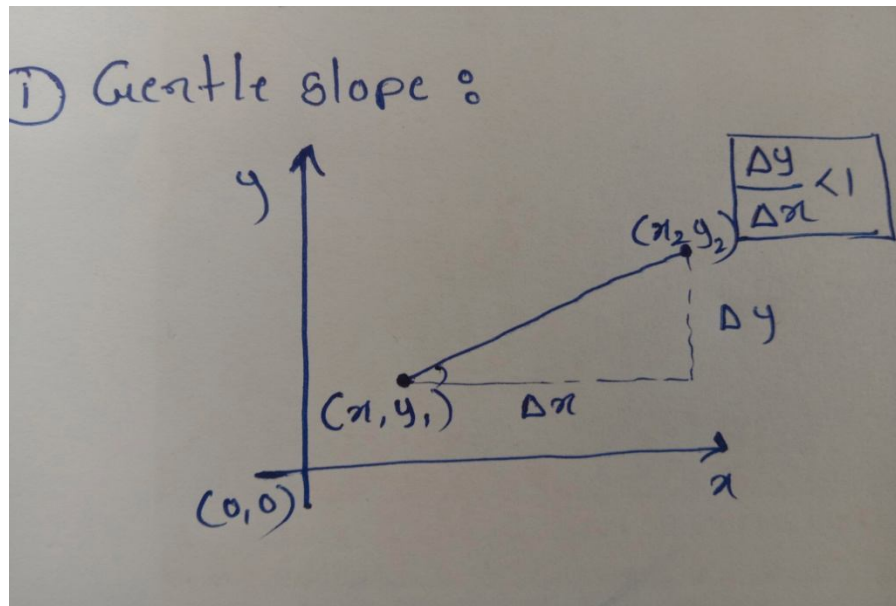 i) Gentle slope :
y
Δy
Δx <1
(x₂y₂)
Δy
(x₁y₁)
Δx
x
(0,0)